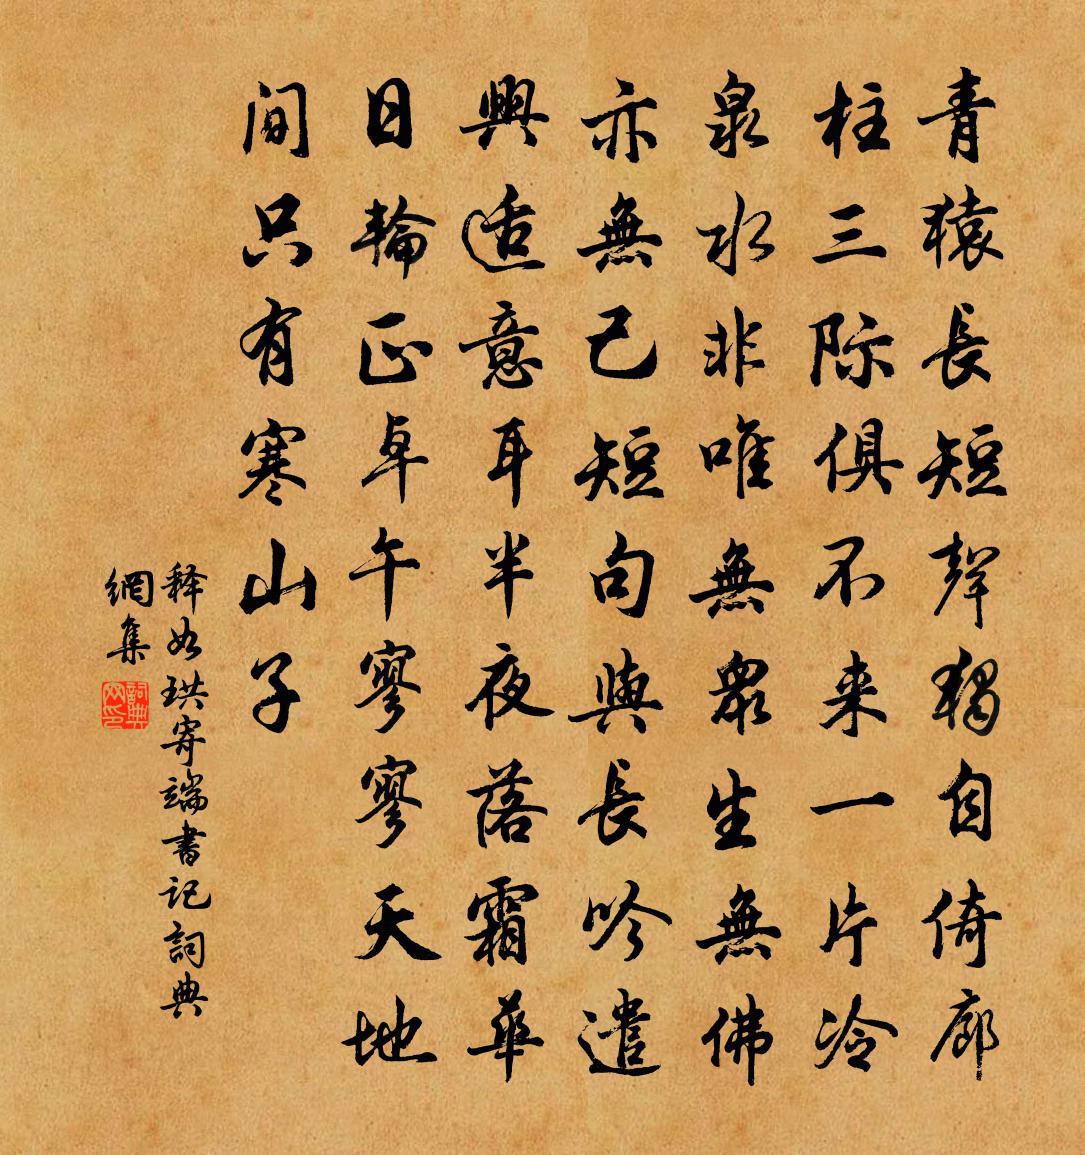 青猿長短聲獨自倚廊
柱三际俱不来一片冷
泉水非唯無衆生無佛
亦無己短句與長吟遣
興适意耳半夜落霜華
日輪正卓午寥寥天地
間只有寒山子
释如珙寄端書记詞典
網集
詞典網印